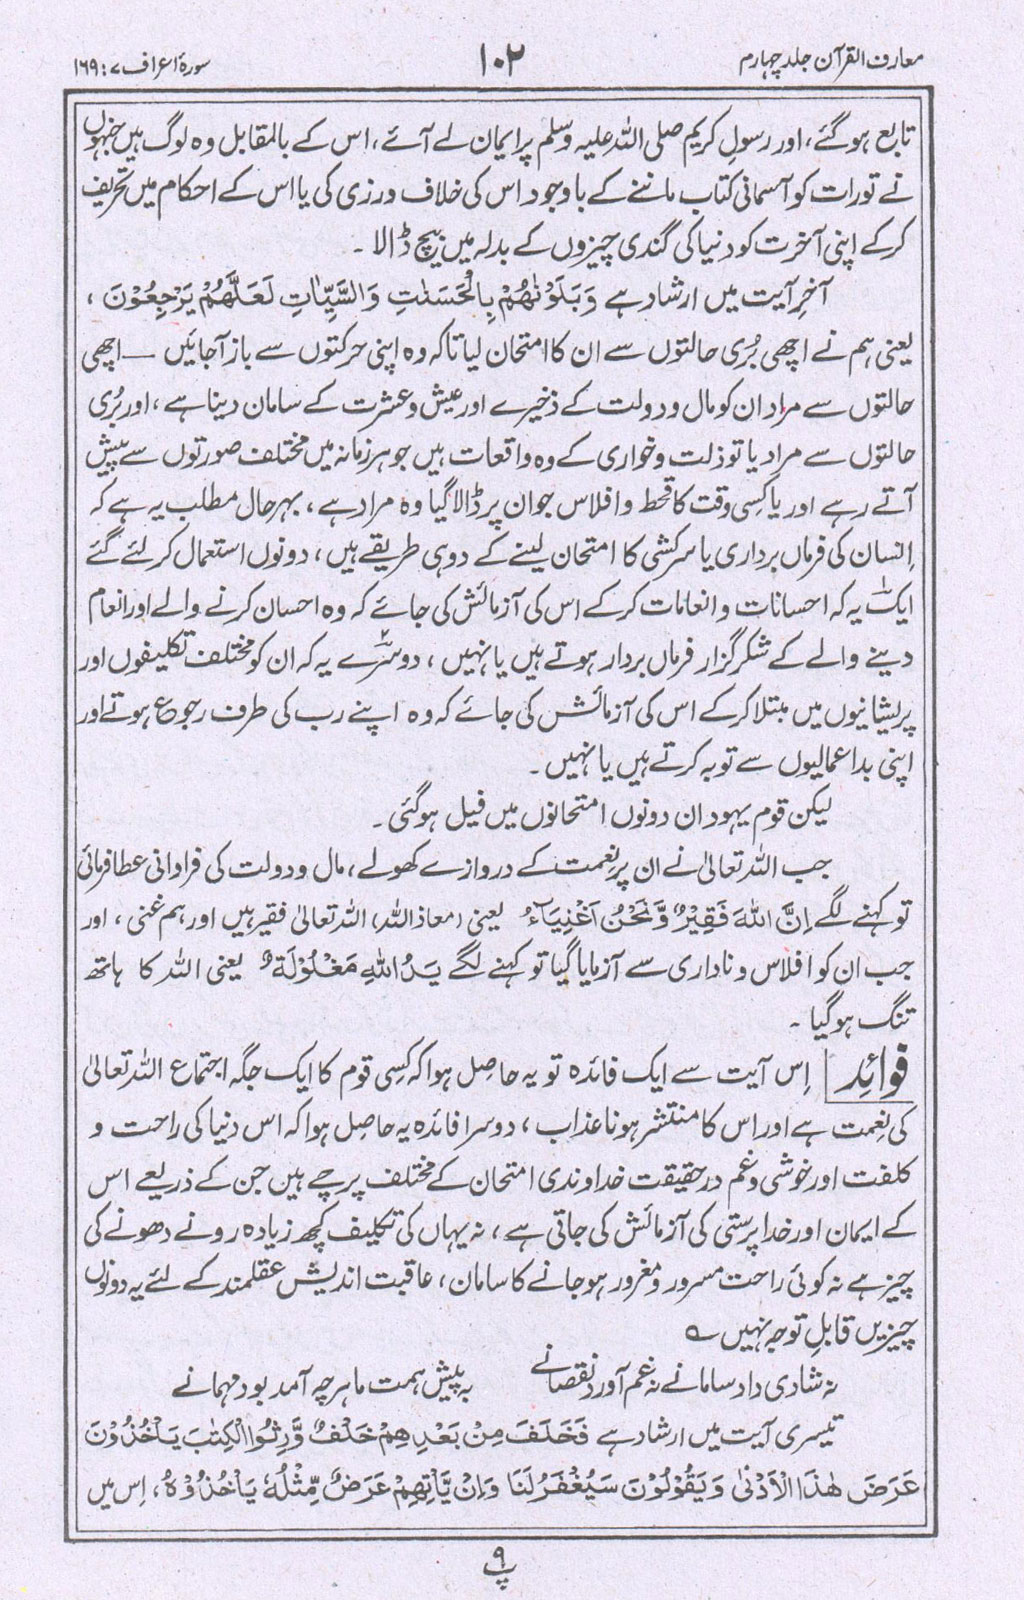 معارف القرآن جلد چہارم ۱۰۲ سورۂ اعراف ۷ : ۱۶۹
تابع ہوگئے، اور رسولِ کریم صلی اللہ علیہ وسلم پر ایمان لے آئے، اس کے بالمقابل وہ لوگ ہیں جنہوں
نے تورات کو آسمانی کتاب ماننے کے باوجود اس کی خلاف ورزی کی یا اس کے احکام میں تحریف
کرکے اپنی آخرت کو دنیا کی گندی چیزوں کے بدلہ میں بیچ ڈالا۔
آخرِ آیت میں ارشاد ہے وَبَلَوْنٰهُمْ بِالْحَسَنٰتِ وَالسَّيِّاٰتِ لَعَلَّهُمْ يَرْجِعُوْنَ،
یعنی ہم نے اچھی بُری حالتوں سے ان کا امتحان لیا تاکہ وہ اپنی حرکتوں سے باز آجائیں — اچھی
حالتوں سے مراد ان کو مال و دولت کے ذخیرے اور عیش و عشرت کے سامان دینا ہے، اور بُری
حالتوں سے مراد یا تو ذلت و خواری کے وہ واقعات ہیں جو ہر زمانہ میں مختلف صورتوں سے پیش
آتے رہے اور یا کسِی وقت کا قحط و افلاس جو ان پر ڈالا گیا وہ مراد ہے، بہرحال مطلب یہ ہے کہ
اِنسان کی فرماں برداری یا سرکشی کا امتحان لینے کے دو ہی طریقے ہیں، دونوں استعمال کرلئے گئے
ایک یہ کہ احسانات و انعامات کرکے اس کی آزمائش کی جائے کہ وہ احسان کرنے والے اور انعام
دینے والے کے شکر گزار فرماں بردار ہوتے ہیں یا نہیں، دوسرے یہ کہ ان کو مختلف تکلیفوں اور
پریشانیوں میں مبتلا کرکے اس کی آزمائش کی جائے کہ وہ اپنے رب کی طرف رجوع ہوتے اور
اپنی بداعمالیوں سے توبہ کرتے ہیں یا نہیں۔
لیکن قوم یہود ان دونوں امتحانوں میں فیل ہوگئی۔
جب اللہ تعالیٰ نے ان پر نِعمت کے دروازے کھولے، مال و دولت کی فراوانی عطا فرمائی
تو کہنے لگے اِنَّ اللهَ فَقِيْرٌ وَّنَحْنُ اَغْنِيَآءُ یعنی (معاذاللہ) اللہ تعالیٰ فقیر ہیں اور ہم غنی، اور
جب ان کو افلاس و ناداری سے آزمایا گیا تو کہنے لگے يَدُ اللهِ مَغْلُوْلَةٌ یعنی اللہ کا ہاتھ
تنگ ہوگیا۔
فوائد اِس آیت سے ایک فائدہ تو یہ حاصل ہوا کہ کسِی قوم کا ایک جگہ اجتماع اللہ تعالیٰ
کی نِعمت ہے اور اس کا منتشر ہونا عذاب، دوسرا فائدہ یہ حاصل ہوا کہ اس دنیا کی راحت و
کلفت اور خوشی و غم درحقیقت خداوندی امتحان کے مختلف پرچے ہیں جن کے ذریعے اس
کے ایمان اور خدا پرستی کی آزمائش کی جاتی ہے، نہ یہاں کی تکلیف کچھ زیادہ رونے دھونے کی
چیز ہے نہ کوئی راحت مسرور و مغرور ہوجانے کا سامان، عاقبت اندیش عقلمند کے لئے یہ دونوں
چیزیں قابلِ توجہ نہیں ؎
نہ شادی داد سامانے نہ غم آورد نقصانے بہ پیش ہمت ما ہرچہ آمد بود مہمانے
تیسری آیت میں ارشاد ہے فَخَلَفَ مِنْ بَعْدِهِمْ خَلْفٌ وَّرِثُوا الْكِتٰبَ يَاْخُذُوْنَ
عَرَضَ هٰذَا الْاَدْنٰى وَيَقُوْلُوْنَ سَيُغْفَرُ لَنَا وَاِنْ يَّاْتِهِمْ عَرَضٌ مِّثْلُهٗ يَاْخُذُوْهُ، اِس میں
پ ۹